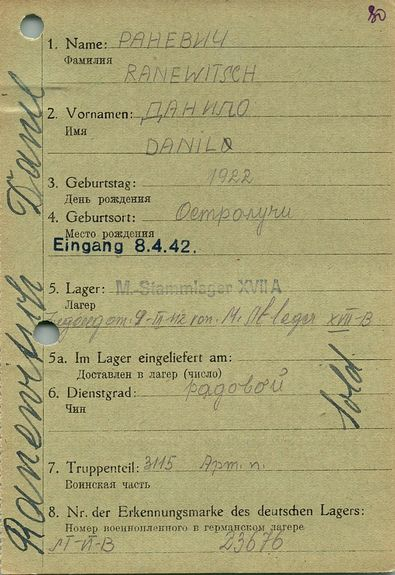 80
1. Name: РАНЕВИЧ
Фамилия
RANEWITSCH
2. Vornamen: ДАНИЛО
Имя
DANILO
3. Geburtstag: 1922
День рождения
4. Geburtsort: Остролучи
Место рождения
Eingang 8.4.42.
5. Lager: M.-Stammlager XVII A
Лагер
von M. lager XVII-B
5a. Im Lager eingeliefert am:
Доставлен в лагер (число)
6. Dienstgrad: радовой
Чин
Sold.
7. Truppenteil: 3115 Арт. п.
Воинская часть
8. Nr. der Erkennungsmarke des deutschen Lagers:
Номер военнопленного в германском лагере
23676
Ranewitsch Danil